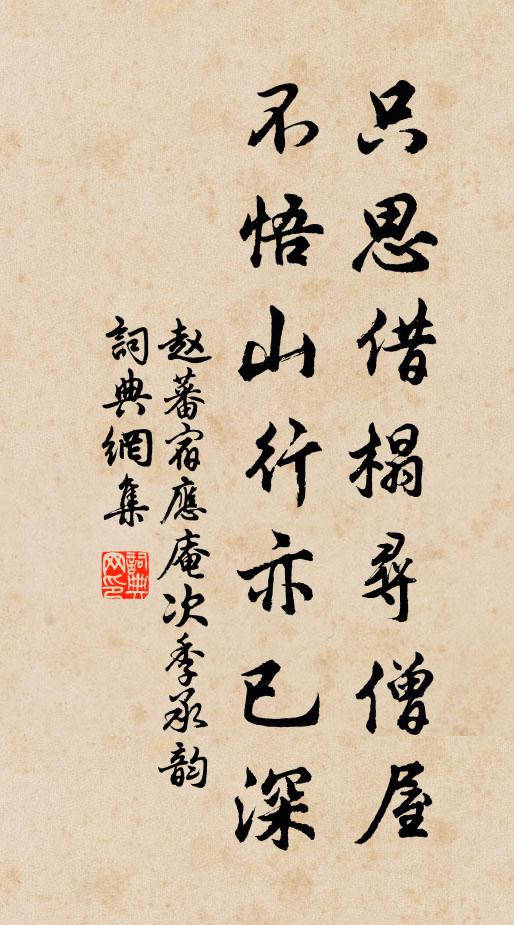 只思借榻尋僧屋
不悟山行亦已深
赵蕃宿應庵次季承韵
詞典網集
詞典
网印